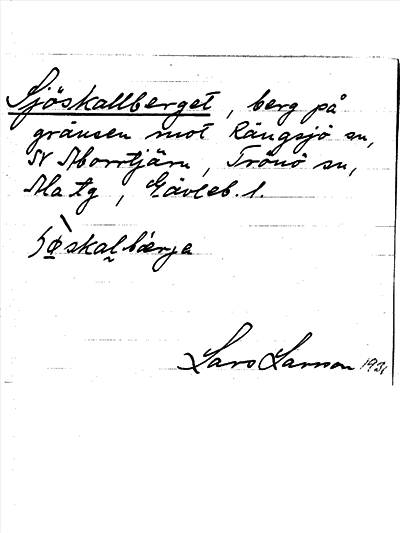 Sjöskallberget, berg på
gränsen mot Rängsjö sn,
N Morrtjärn, Trönö sn,
Ala tg, Gävleb. l.
skalbærje
Lars Larsson 193